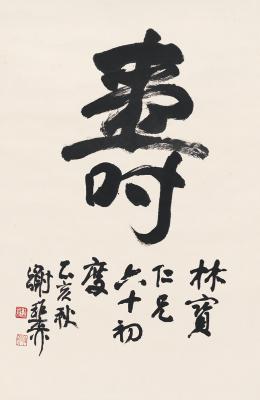 壽
林寶
仁兄
六十初
度
乙亥秋
謝稚柳